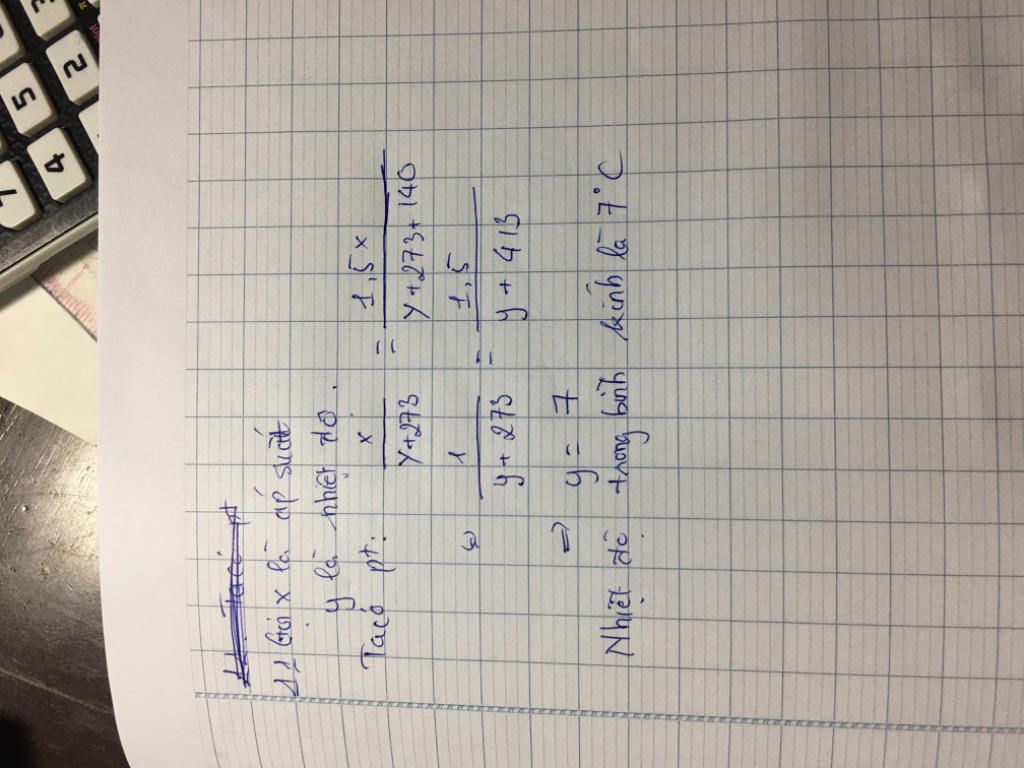 11 Ta có pt
11 Gọi x là áp suất
y là nhiệt độ.
Ta có pt.
x / y+273 = 1,5x / y+273+140
⇔ 1 / y+273 = 1,5 / y+413
⇒ y = 7
Nhiệt độ trong bình kính là 7°C
7
4
5
2